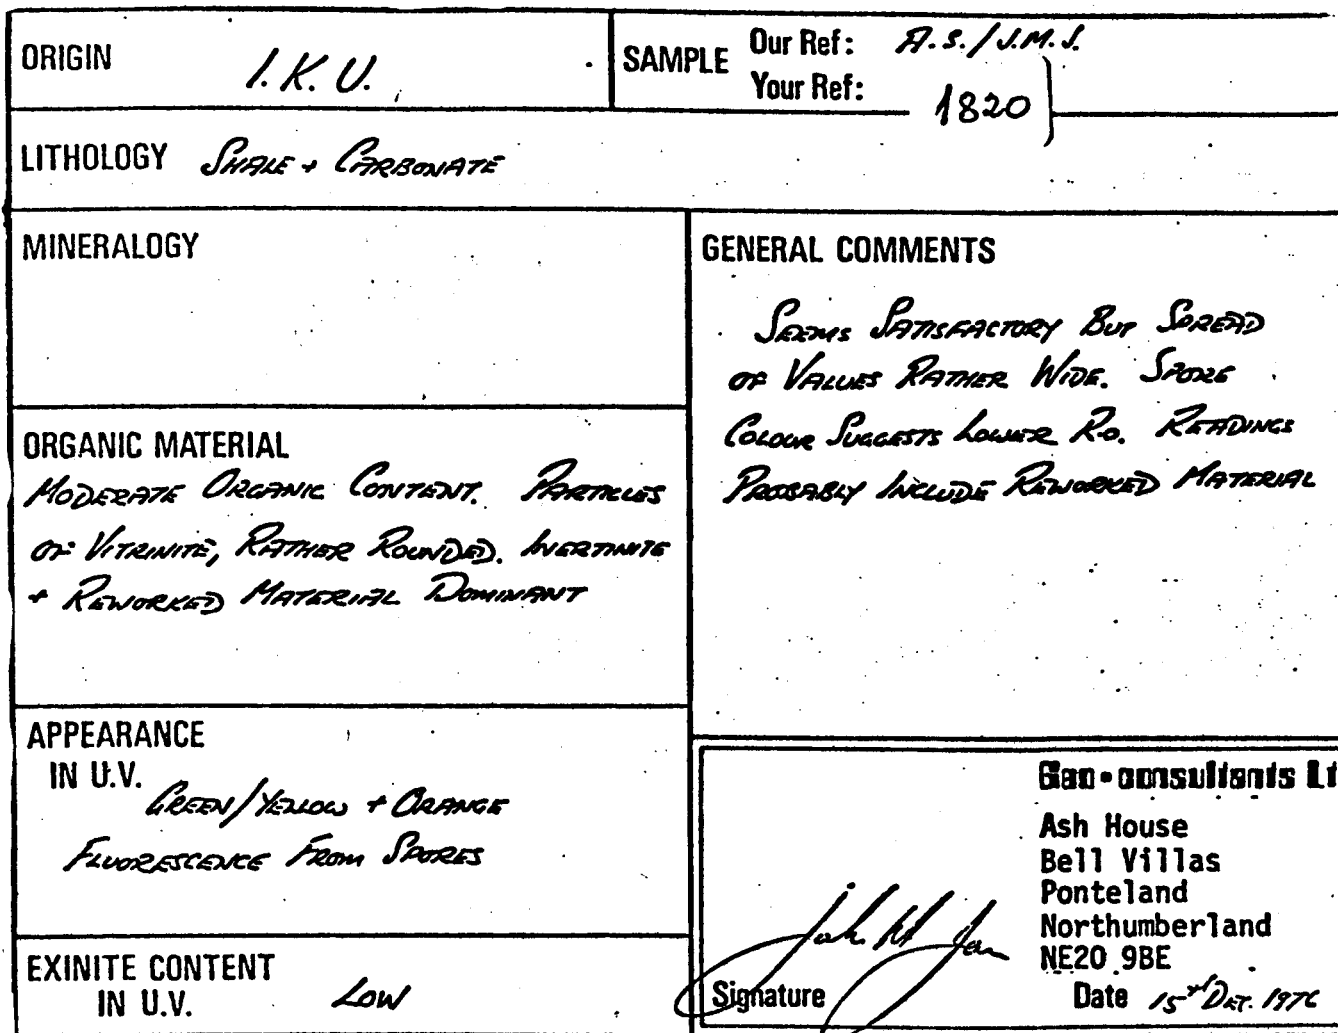 ORIGIN I.K.U.
SAMPLE Our Ref: A.S./J.M.J.
Your Ref: 1820
LITHOLOGY SHALE + CARBONATE
MINERALOGY
ORGANIC MATERIAL
MODERATE ORGANIC CONTENT. PARTICLES
OF VITRINITE, RATHER ROUNDED. INERTINITE
+ REWORKED MATERIAL DOMINANT
APPEARANCE
IN U.V.
GREEN/YELLOW + ORANGE
FLUORESCENCE FROM SPORES
EXINITE CONTENT
IN U.V. LOW
GENERAL COMMENTS
SEEMS SATISFACTORY BUT SPREAD
OF VALUES RATHER WIDE. SPORE
COLOUR SUGGESTS LOWER R.O. READINGS
PROBABLY INCLUDE REWORKED MATERIAL
Geo-consultants Lt
Ash House
Bell Villas
Ponteland
Northumberland
NE20 9BE
Signature John M
Date 15 1976